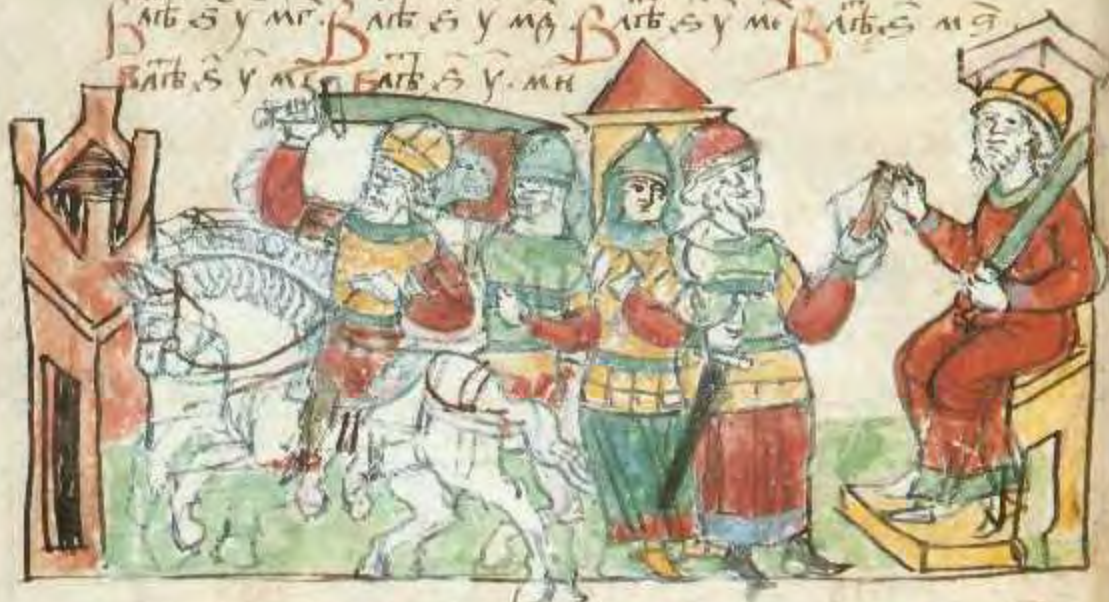 В лѣⷮ ѕ҃ у м҃г. В лѣⷮ ѕ҃ у м҃д. В лѣⷮ ѕ҃ у м҃е В лѣⷮ ѕ҃ м҃ѕ.
В лѣⷮ ѕ҃ у м҃з В лѣⷮ ѕ҃ у҃. м҃и